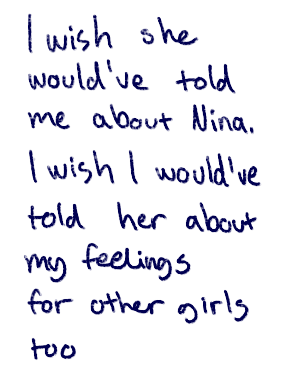 I wish she
would've told
me about Nina.
I wish I would've
told her about
my feelings
for other girls
too